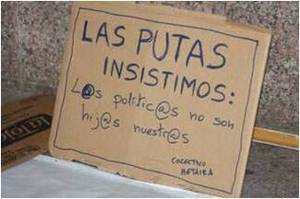 LAS PUTAS
INSISTIMOS:
L@s politic@s no son
hij@s nuestr@s
COLECTIVO
HETAIRA